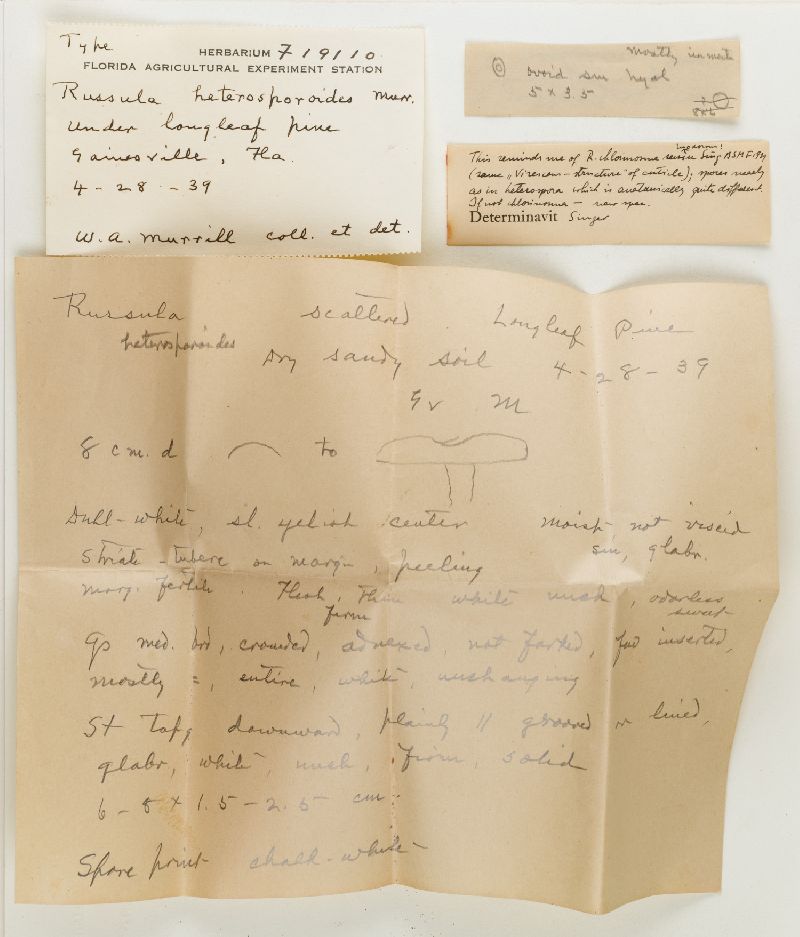 Type
HERBARIUM 7 19110
FLORIDA AGRICULTURAL EXPERIMENT STATION
Russula heterosporoides Murr.
under longleaf pine
Gainesville, Fla.
4-28-39
W.A. Murrill coll. et det.
mostly
ovoid sm hyal
5 x 3.5
This reminds me of R. chlorinosma Sing
(same „Virescens-structure" of cuticle); spores nearly
as in heterospora which is anatomically quite different.
If not chlorinosma — new spec.
Determinavit Singer
Russula scattered Longleaf Pine
heterosporoides
Dry sandy soil 4-28-39
Gv M
8 cm. d to
Dull-white, sl. yelish center moist not viscid
sm, glabr.
Striate-tuberc on margin, peeling
marg. fertile. Flesh, thin white unch, odorless
firm sweet
Gs med. brd, crowded, adnexed, not forked, few inserted,
mostly =, entire, white, unchanging
St tapg downward, plainly // grooved or lined,
glabr, white, unch, firm, solid
6-8 x 1.5-2.5 cm.
Spore print chalk-white